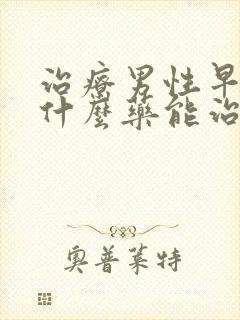 治療男性早
什麼藥能治
奧普萊特